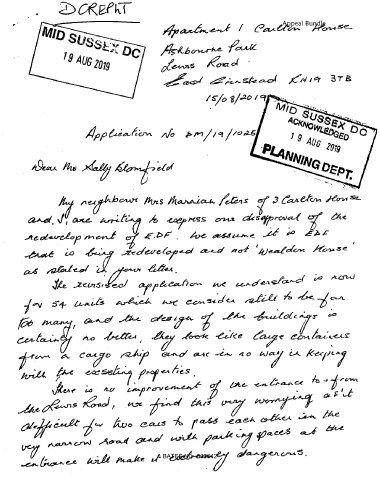 DCREPHT
Appeal Bundle
Apartment 1 Carlton House
Ashbourne Park
Lewes Road
East Grinstead RH19 3TB
15/08/2019
MID SUSSEX DC
19 AUG 2019
MID SUSSEX DC
ACKNOWLEDGED
19 AUG 2019
PLANNING DEPT.
Application No DM/19/1025
Dear Ms Sally Blomfield
My neighbour Mrs Marrian Peters of 3 Carlton House
and I are writing to express one disapproval of the
redevelopment of EDF. We assume it is EDF
that is being redeveloped and not 'Wealdon House'
as stated in your letter.
The revised application we understand is now
for 54 units which we consider still to be far
too many, and the design of the buildings is
certainty no better, they look like large containers
from a cargo ship and are in no way in keeping
with the existing properties.
There is no improvement of the entrance to & from
the Lewes Road, we find this very worrying as it
difficult for two cars to pass each other in the
very narrow road and with parking spaces at the
entrance will make it extremely dangerous.